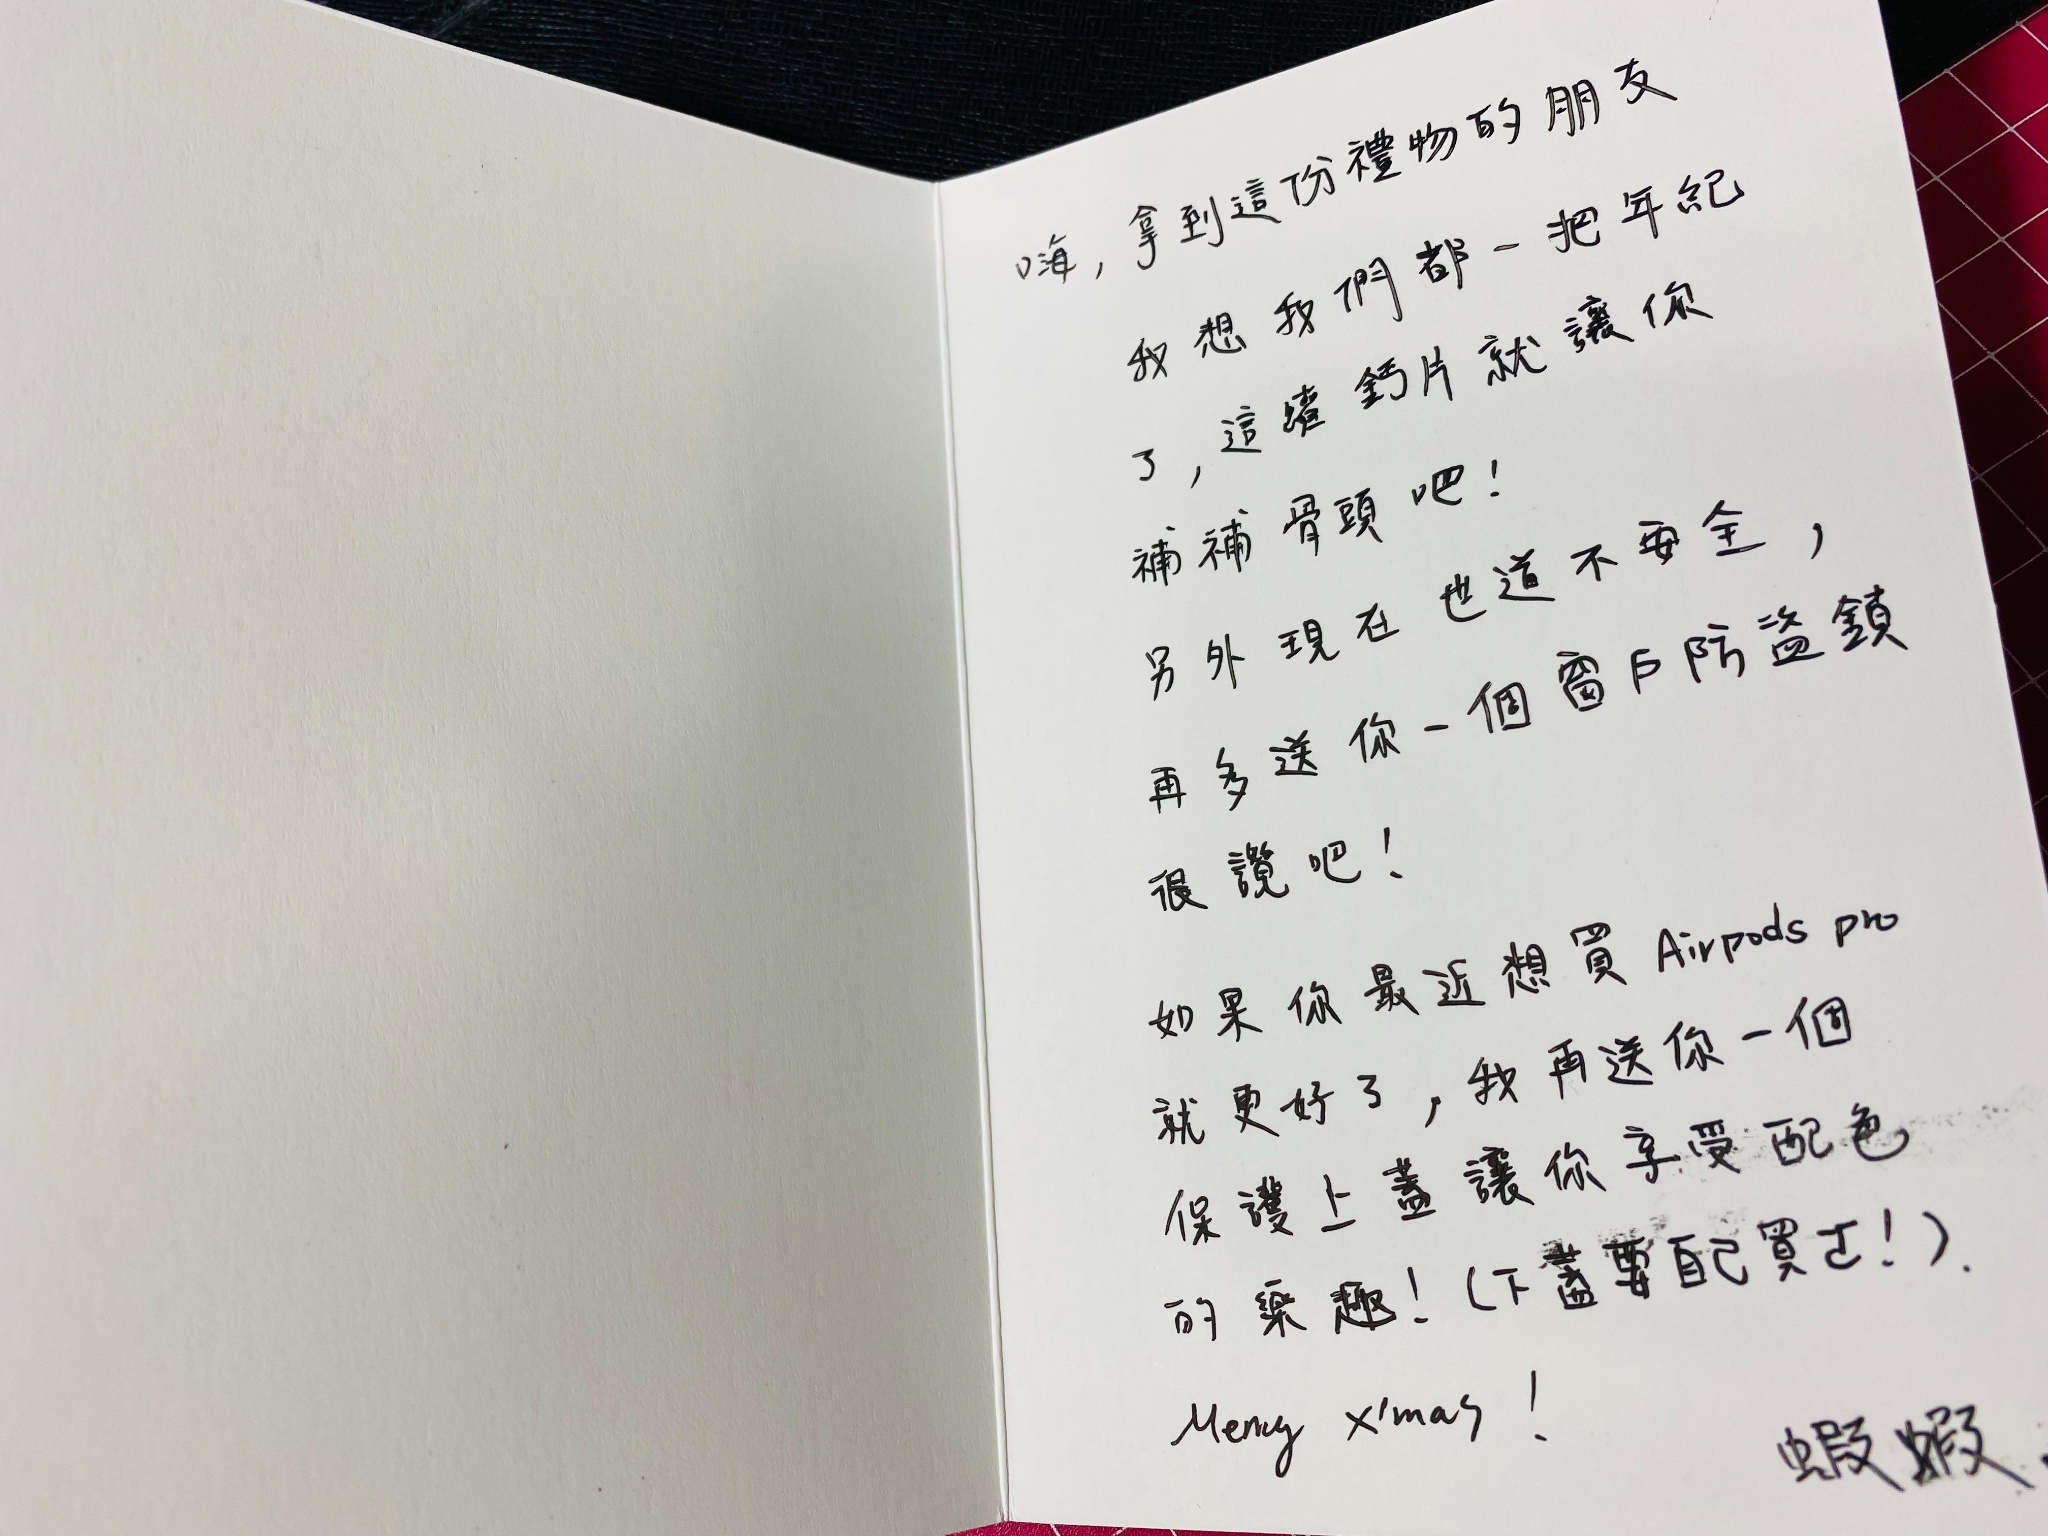 嗨，拿到這份禮物的朋友
我想我們都一把年紀
了，這罐鈣片就讓你
補補骨頭吧！
另外現在世道不安全，
再多送你一個窗戶防盜鎖
很讚吧！
如果你最近想買 Airpods pro
就更好了，我再送你一個
保護上蓋讓你享受配色
的樂趣！（下蓋要自己買ㄛ！）.
Merry X'mas！
蝦蝦.